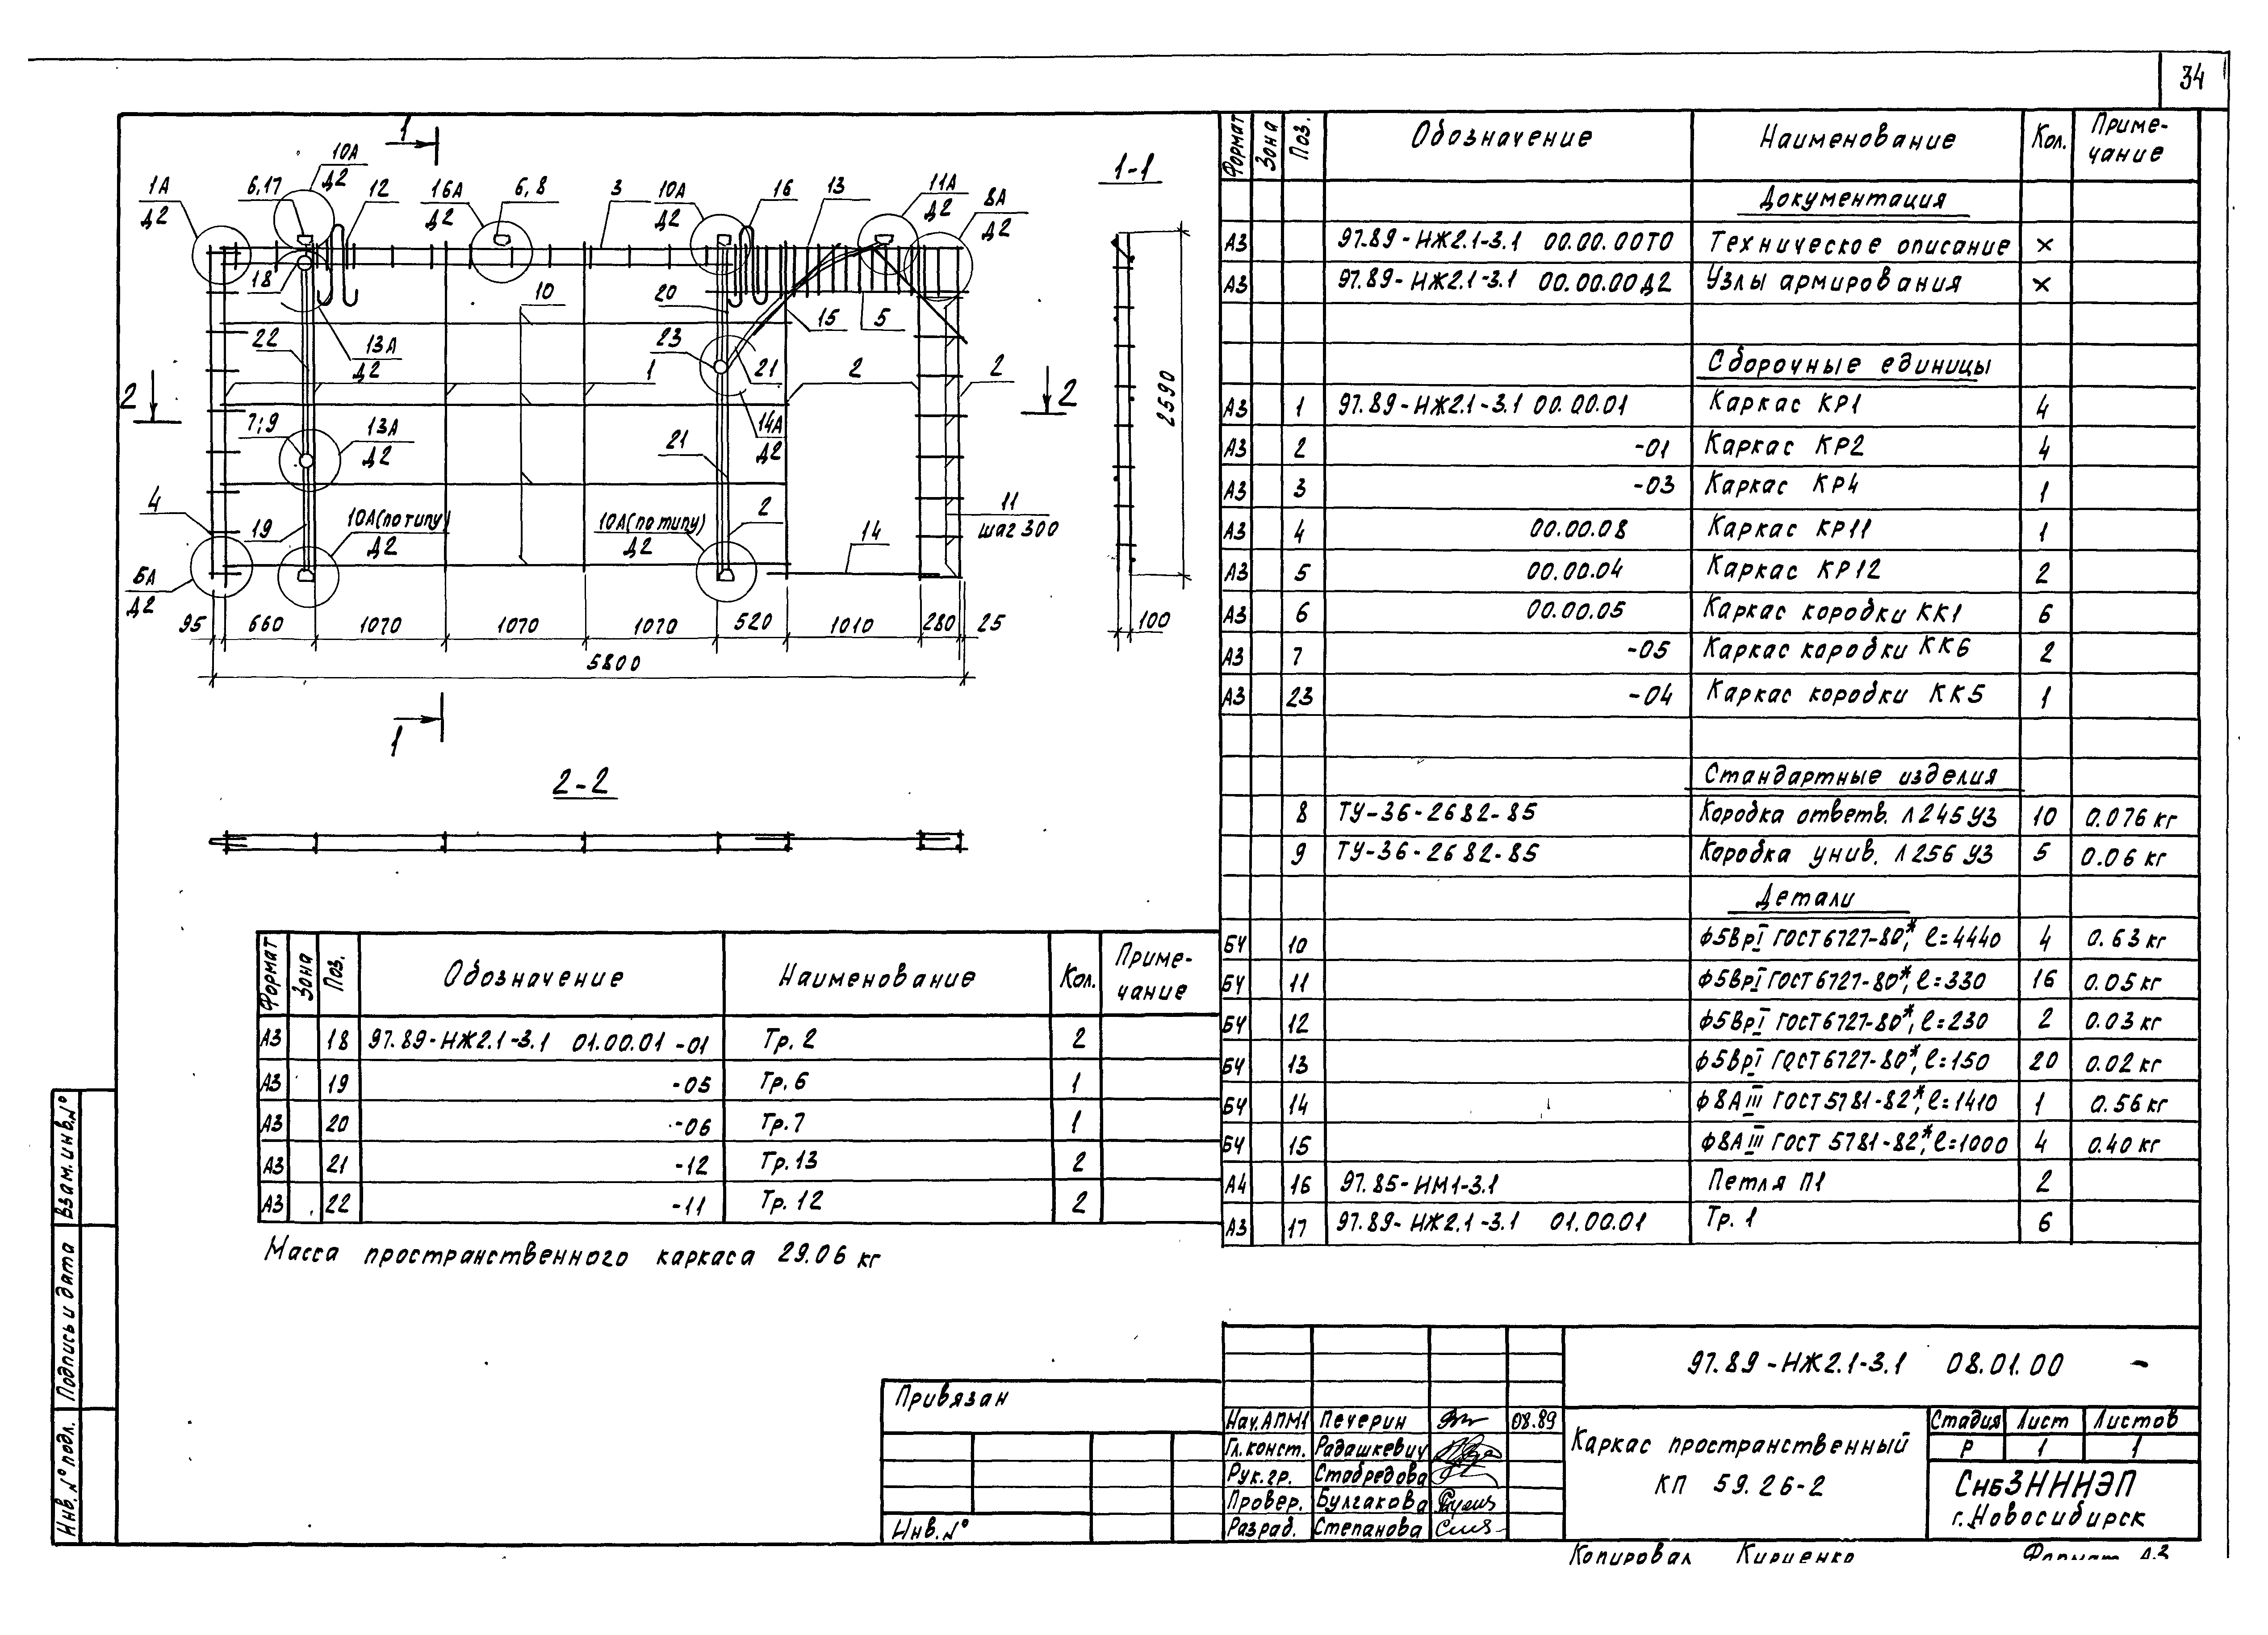 34
1
10А
Д2
1А
Д2
6,17
12
16А
Д2
6,8
3
10А
Д2
16
13
11А
Д2
8А
Д2
1-1
18
10
20
15
5
22
13А
Д2
23
21
1
2
2
2
2
2590
7;9
13А
Д2
21
14А
Д2
4
19
10А(по типу)
Д2
10А(по типу)
Д2
2
14
11
шаг 300
5А
Д2
95
660
1070
1070
1070
520
1010
280
25
100
5800
1
2-2
Формат Зона Поз. Обозначение Наименование Кол. Приме-
чание
Документация
А3 97.89-НЖ2.1-3.1 00.00.00ТО Техническое описание ×
А3 97.89-НЖ2.1-3.1 00.00.00Д2 Узлы армирования ×
Сборочные единицы
А3 1 97.89-НЖ2.1-3.1 00.00.01 Каркас КР1 4
А3 2 -01 Каркас КР2 4
А3 3 -03 Каркас КР4 1
А3 4 00.00.08 Каркас КР11 1
А3 5 00.00.04 Каркас КР12 2
А3 6 00.00.05 Каркас коробки КК1 6
А3 7 -05 Каркас коробки КК6 2
А3 23 -04 Каркас коробки КК5 1
Стандартные изделия
8 ТУ-36-2682-85 Коробка ответв. Л245У3 10 0.076 кг
9 ТУ-36-2682-85 Коробка унив. Л256У3 5 0.06 кг
Детали
БЧ 10 Ф5ВрI ГОСТ 6727-80*, ℓ=4440 4 0.63 кг
БЧ 11 Ф5ВрI ГОСТ 6727-80*, ℓ=330 16 0.05 кг
БЧ 12 Ф5ВрI ГОСТ 6727-80*, ℓ=230 2 0.03 кг
БЧ 13 Ф5ВрI ГОСТ 6727-80*, ℓ=150 20 0.02 кг
БЧ 14 Ф8АIII ГОСТ 5781-82*, ℓ=1410 1 0.56 кг
БЧ 15 Ф8АIII ГОСТ 5781-82*, ℓ=1000 4 0.40 кг
А4 16 97.85-НМ1-3.1 Петля П1 2
А3 17 97.89-НЖ2.1-3.1 01.00.01 Тр. 1 6
Формат Зона Поз. Обозначение Наименование Кол. Приме-
чание
А3 18 97.89-НЖ2.1-3.1 01.00.01 -01 Тр. 2 2
А3 19 -05 Тр. 6 1
А3 20 -06 Тр. 7 1
А3 21 -12 Тр. 13 2
А3 22 -11 Тр. 12 2
Масса пространственного каркаса 29.06 кг
Взам. инв. №
Подпись и дата
Инв. № подл.
Привязан
Инв. №
97.89-НЖ2.1-3.1 08.01.00 -
Нач.АПМ1 Печерин 08.89
Гл.конст. Радашкевич
Рук.гр. Стабредова
Провер. Булгакова
Разраб. Степанова
Каркас пространственный
КП 59.26-2
Стадия Лист Листов
Р 1 1
СибЗНИИЭП
г.Новосибирск
Копировал Кириенко Формат А3